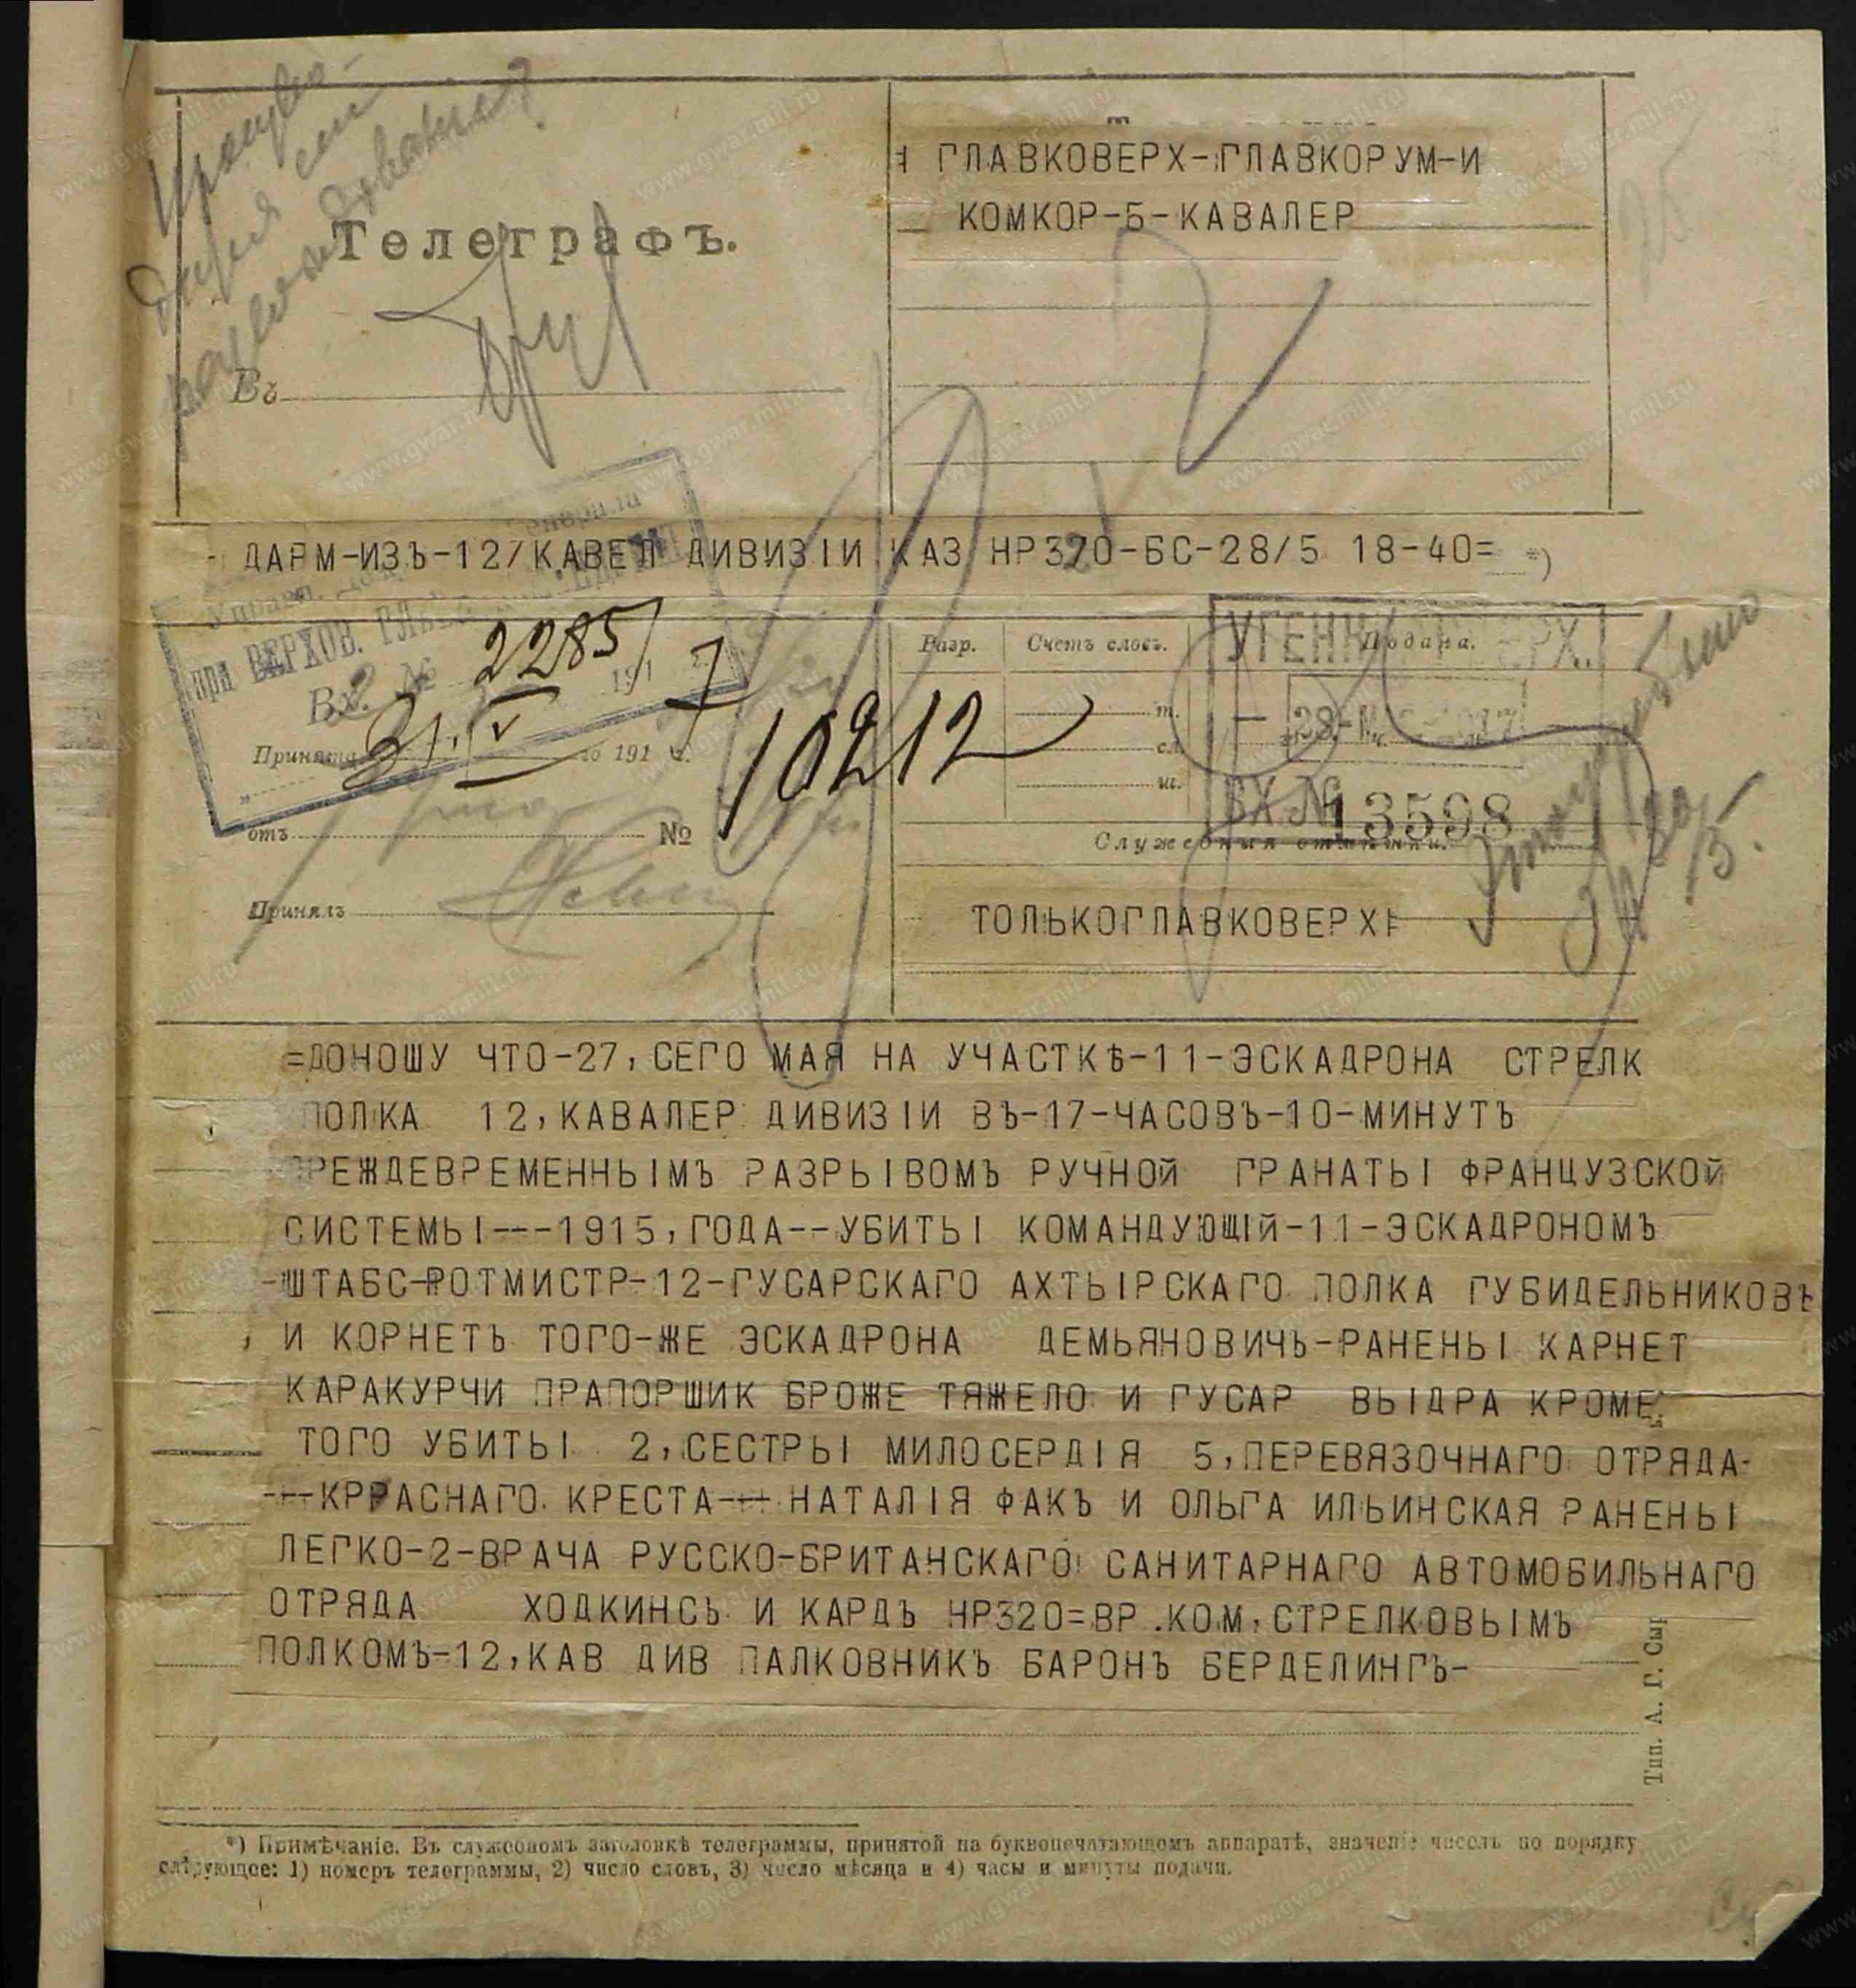 ГЛАВКОВЕРХ-ГЛАВКОРУМ-И
КОМКОР-5-КАВАЛЕР
Телеграфъ.
Въ
ДАРМ-ИЗЪ-12/КАВЕЛ ДИВИЗІИ КАЗ НР320-БС-28/5 18-40= *)
при ВЕРХОВ.
Вх. № 2285
191
Разр. Счетъ словъ. Подана.
28-
10212
т.
сл.
ш.
Принята 31.V го 191 г.
ВХ.№ 13598
отъ №
Служебныя отмѣтки.
Принялъ
ТОЛЬКОГЛАВКОВЕРХ
=ДОНОШУ ЧТО-27,СЕГО МАЯ НА УЧАСТКѢ-11-ЭСКАДРОНА СТРЕЛК
ПОЛКА 12,КАВАЛЕР ДИВИЗІИ ВЪ-17-ЧАСОВЪ-10-МИНУТЪ
ПРЕЖДЕВРЕМЕННЫМЪ РАЗРЫВОМЪ РУЧНОЙ ГРАНАТЫ ФРАНЦУЗСКОЙ
СИСТЕМЫ---1915,ГОДА--УБИТЫ КОМАНДУЮЩІЙ-11-ЭСКАДРОНОМЪ
-ШТАБС-РОТМИСТР-12-ГУСАРСКАГО АХТЫРСКАГО ПОЛКА ГУБИДЕЛЬНИКОВЪ
, И КОРНЕТЪ ТОГО-ЖЕ ЭСКАДРОНА ДЕМЬЯНОВИЧЬ-РАНЕНЫ КАРНЕТ
КАРАКУРЧИ ПРАПОРШИК БРОЖЕ ТЯЖЕЛО И ГУСАР ВЫДРА КРОМЕ
ТОГО УБИТЫ 2,СЕСТРЫ МИЛОСЕРДІЯ 5,ПЕРЕВЯЗОЧНАГО ОТРЯДА-
---КРРАСНАГО КРЕСТА--- НАТАЛІЯ ФАКЪ И ОЛЬГА ИЛЬИНСКАЯ РАНЕНЫ
ЛЕГКО-2-ВРАЧА РУССКО-БРИТАНСКАГО САНИТАРНАГО АВТОМОБИЛЬНАГО
ОТРЯДА ХОДКИНСЬ И КАРДЪ НР320=ВР.КОМ,СТРЕЛКОВЫМЪ
ПОЛКОМЪ-12,КАВ ДИВ ПАЛКОВНИКЪ БАРОНЪ БЕРДЕЛИНГЬ-
Тип. А. Г. Сыр
*) Примѣчаніе. Въ служебномъ заголовкѣ телеграммы, принятой на буквопечатающемъ аппаратѣ, значеніе чиселъ по порядку
слѣдующее: 1) номеръ телеграммы, 2) число словъ, 3) число мѣсяца и 4) часы и минуты подачи.